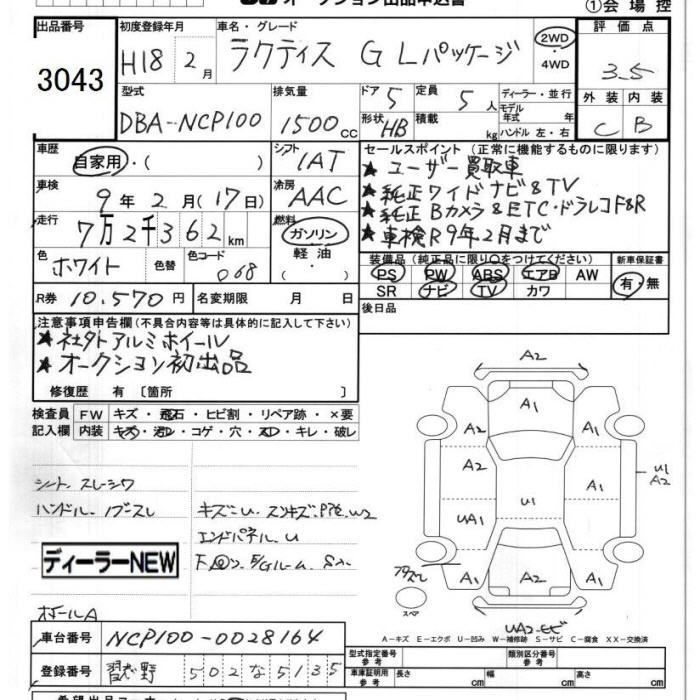 オークション出品申込書
①会場控
出品番号 初度登録年月 車名・グレード 評価点
3043 H18 2月 ラクティス G Lパッケージ 2WD・4WD 3.5
型式 排気量 ドア 5 定員 5人 ディーラー・並行 外装 内装
DBA-NCP100 1500cc 形状 HB 積載 kg モデル年式 年 C B
ハンドル 左・右
車歴 シフト セールスポイント (正常に機能するものに限ります)
自家用・( ) IAT ★ユーザー買取車
車検 冷房 ★純正ワイドナビ&TV
9年2月(17日) AAC ★純正Bカメラ&ETC・ドラレコF&R
走行 燃料 ★車検R9年2月まで
7万2千362km ガソリン
軽油・
色 ホワイト 色替 色コード 068
装備品 (純正品に限り○をつけてください) 新車保証書
PS PW ABS エアB AW 有・無
SR ナビ TV カワ
R券 10,570円 名変期限 月 日 後日品
注意事項申告欄(不具合内容等は具体的に記入して下さい)
★社外アルミホイール
★オークション初出品
修復歴 有 〔箇所 〕
検査員 FW キズ・飛石・ヒビ割・リペア跡・×要
記入欄 内装 キズ・汚れ・コゲ・穴・スレ・キレ・破レ
シート、スレ・シワ
ハンドル
キズ・U
エンドパネル、U
ディーラーNEW
A2
A1
A2 A1
A2 A1 U1 A2
U1
UA1 A1
A1 A2 A1
スペア
UA2
A-キズ E-エクボ U-凹み W-補修跡 S-サビ C-腐食 XX-交換済
車台番号 NCP100-0028164
型式指定番号 参考 類別区分番号 参考
登録番号 習志野 502 な 5135
車庫証明用 参考 長さ cm 幅 cm 高さ cm